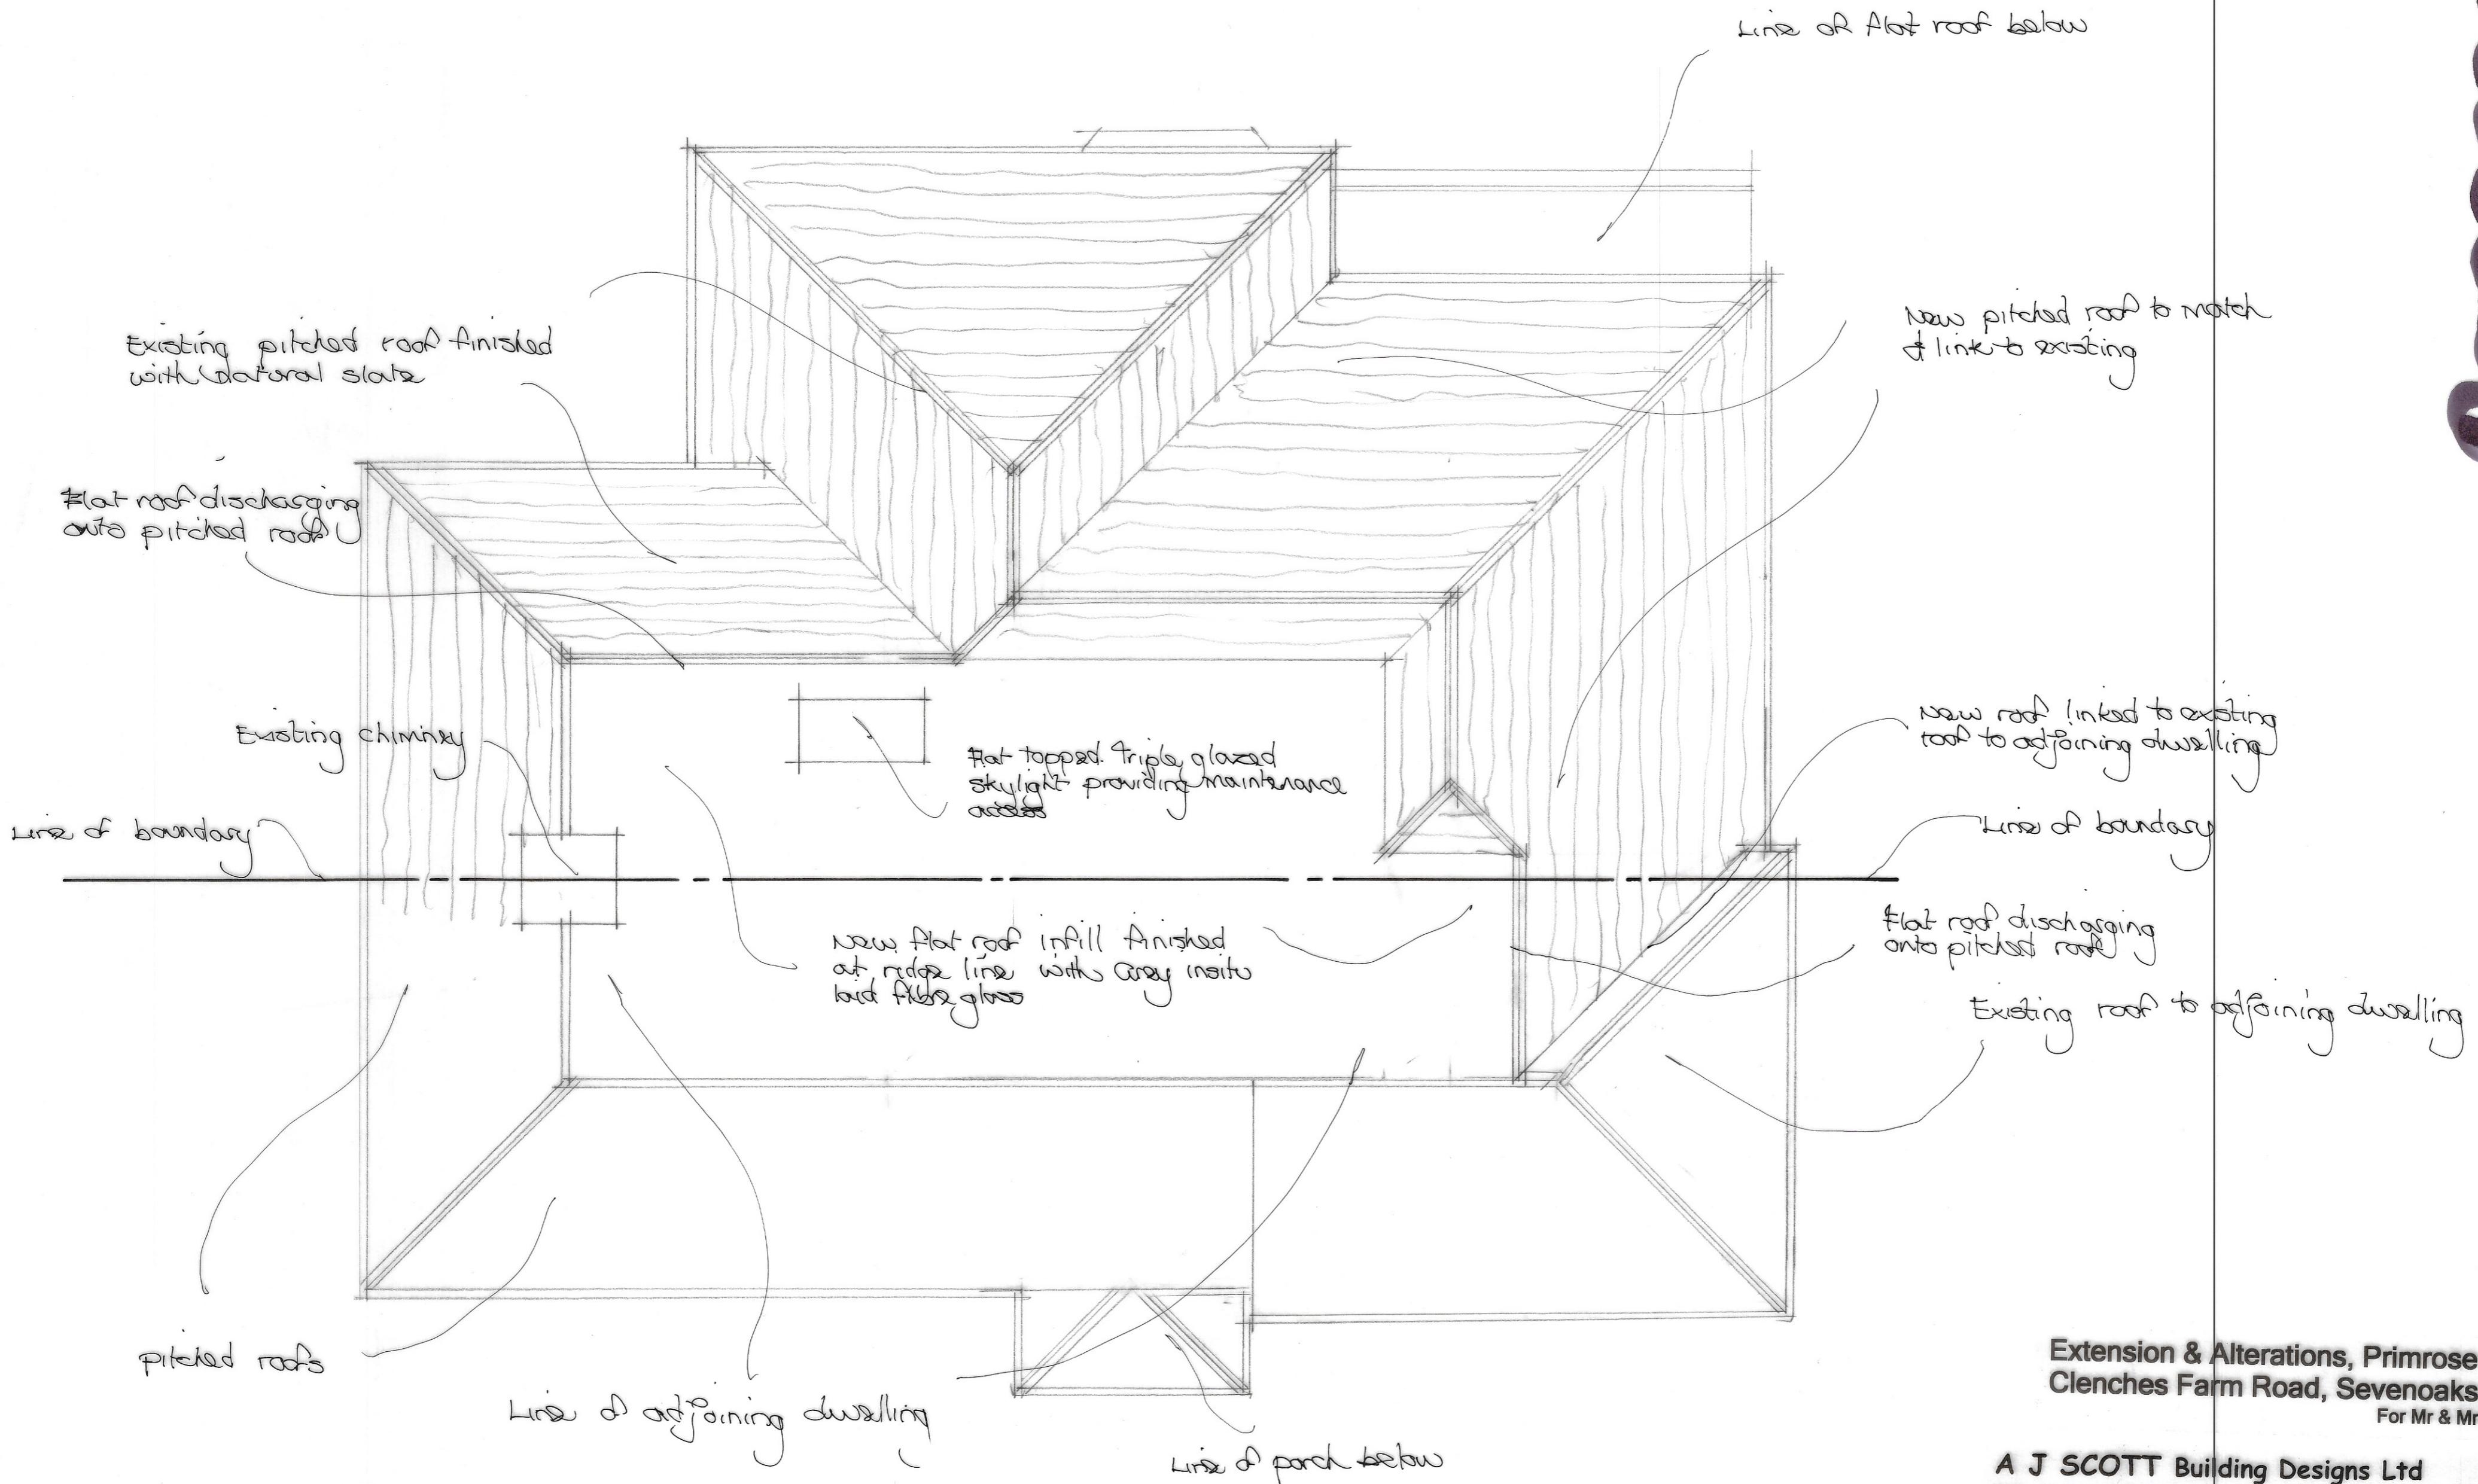 Line of flat roof below
New pitched roof to match
& link to existing
Existing pitched roof finished
with natural slate
Flat roof discharging
onto pitched roof
Existing chimney
Flat topped triple glazed
skylight providing maintenance
access
New roof linked to existing
roof to adjoining dwelling
Line of boundary
Line of boundary
New flat roof infill finished
at ridge line with Grey insitu
laid fibre glass
Flat roof discharging
onto pitched roof
Existing roof to adjoining dwelling
pitched roofs
Line of adjoining dwelling
Line of porch below
Extension & Alterations, Primrose
Clenches Farm Road, Sevenoaks
For Mr & Mr
A J SCOTT Building Designs Ltd